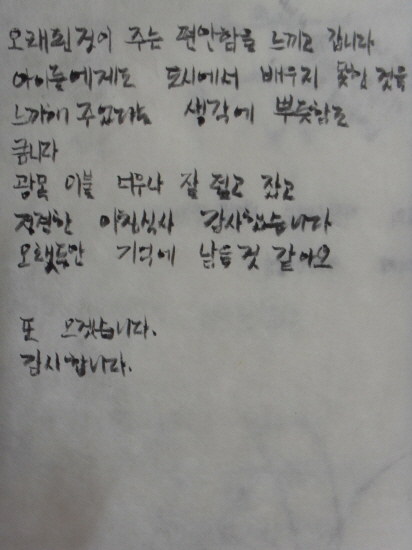 오래된것이 주는 편안함을 느끼고 갑니다
아이들에게도 도시에서 배우지 못한 것을
느끼게 해주었다는 생각에 뿌듯함도
큽니다
광목 이불 너무나 잘 덮고 잤고
정결한 아침식사 감사했습니다
오랫동안 기억에 남을것 같아요
또 오겠습니다.
감사합니다.